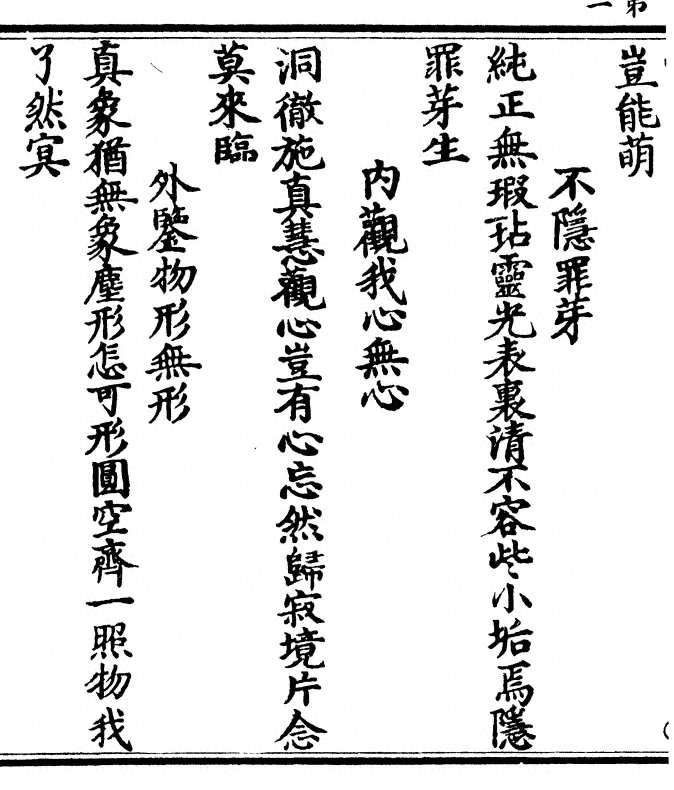 第一
豈能萌
不隱罪芽
純正無瑕玷靈光表裏清不容些小垢焉隱
罪芽生
内觀我心無心
洞徹施真慧觀心豈有心忘然歸寂境片念
莫來臨
外鑒物形無形
真象猶無象塵形怎可形圓空齊一照物我
了然冥